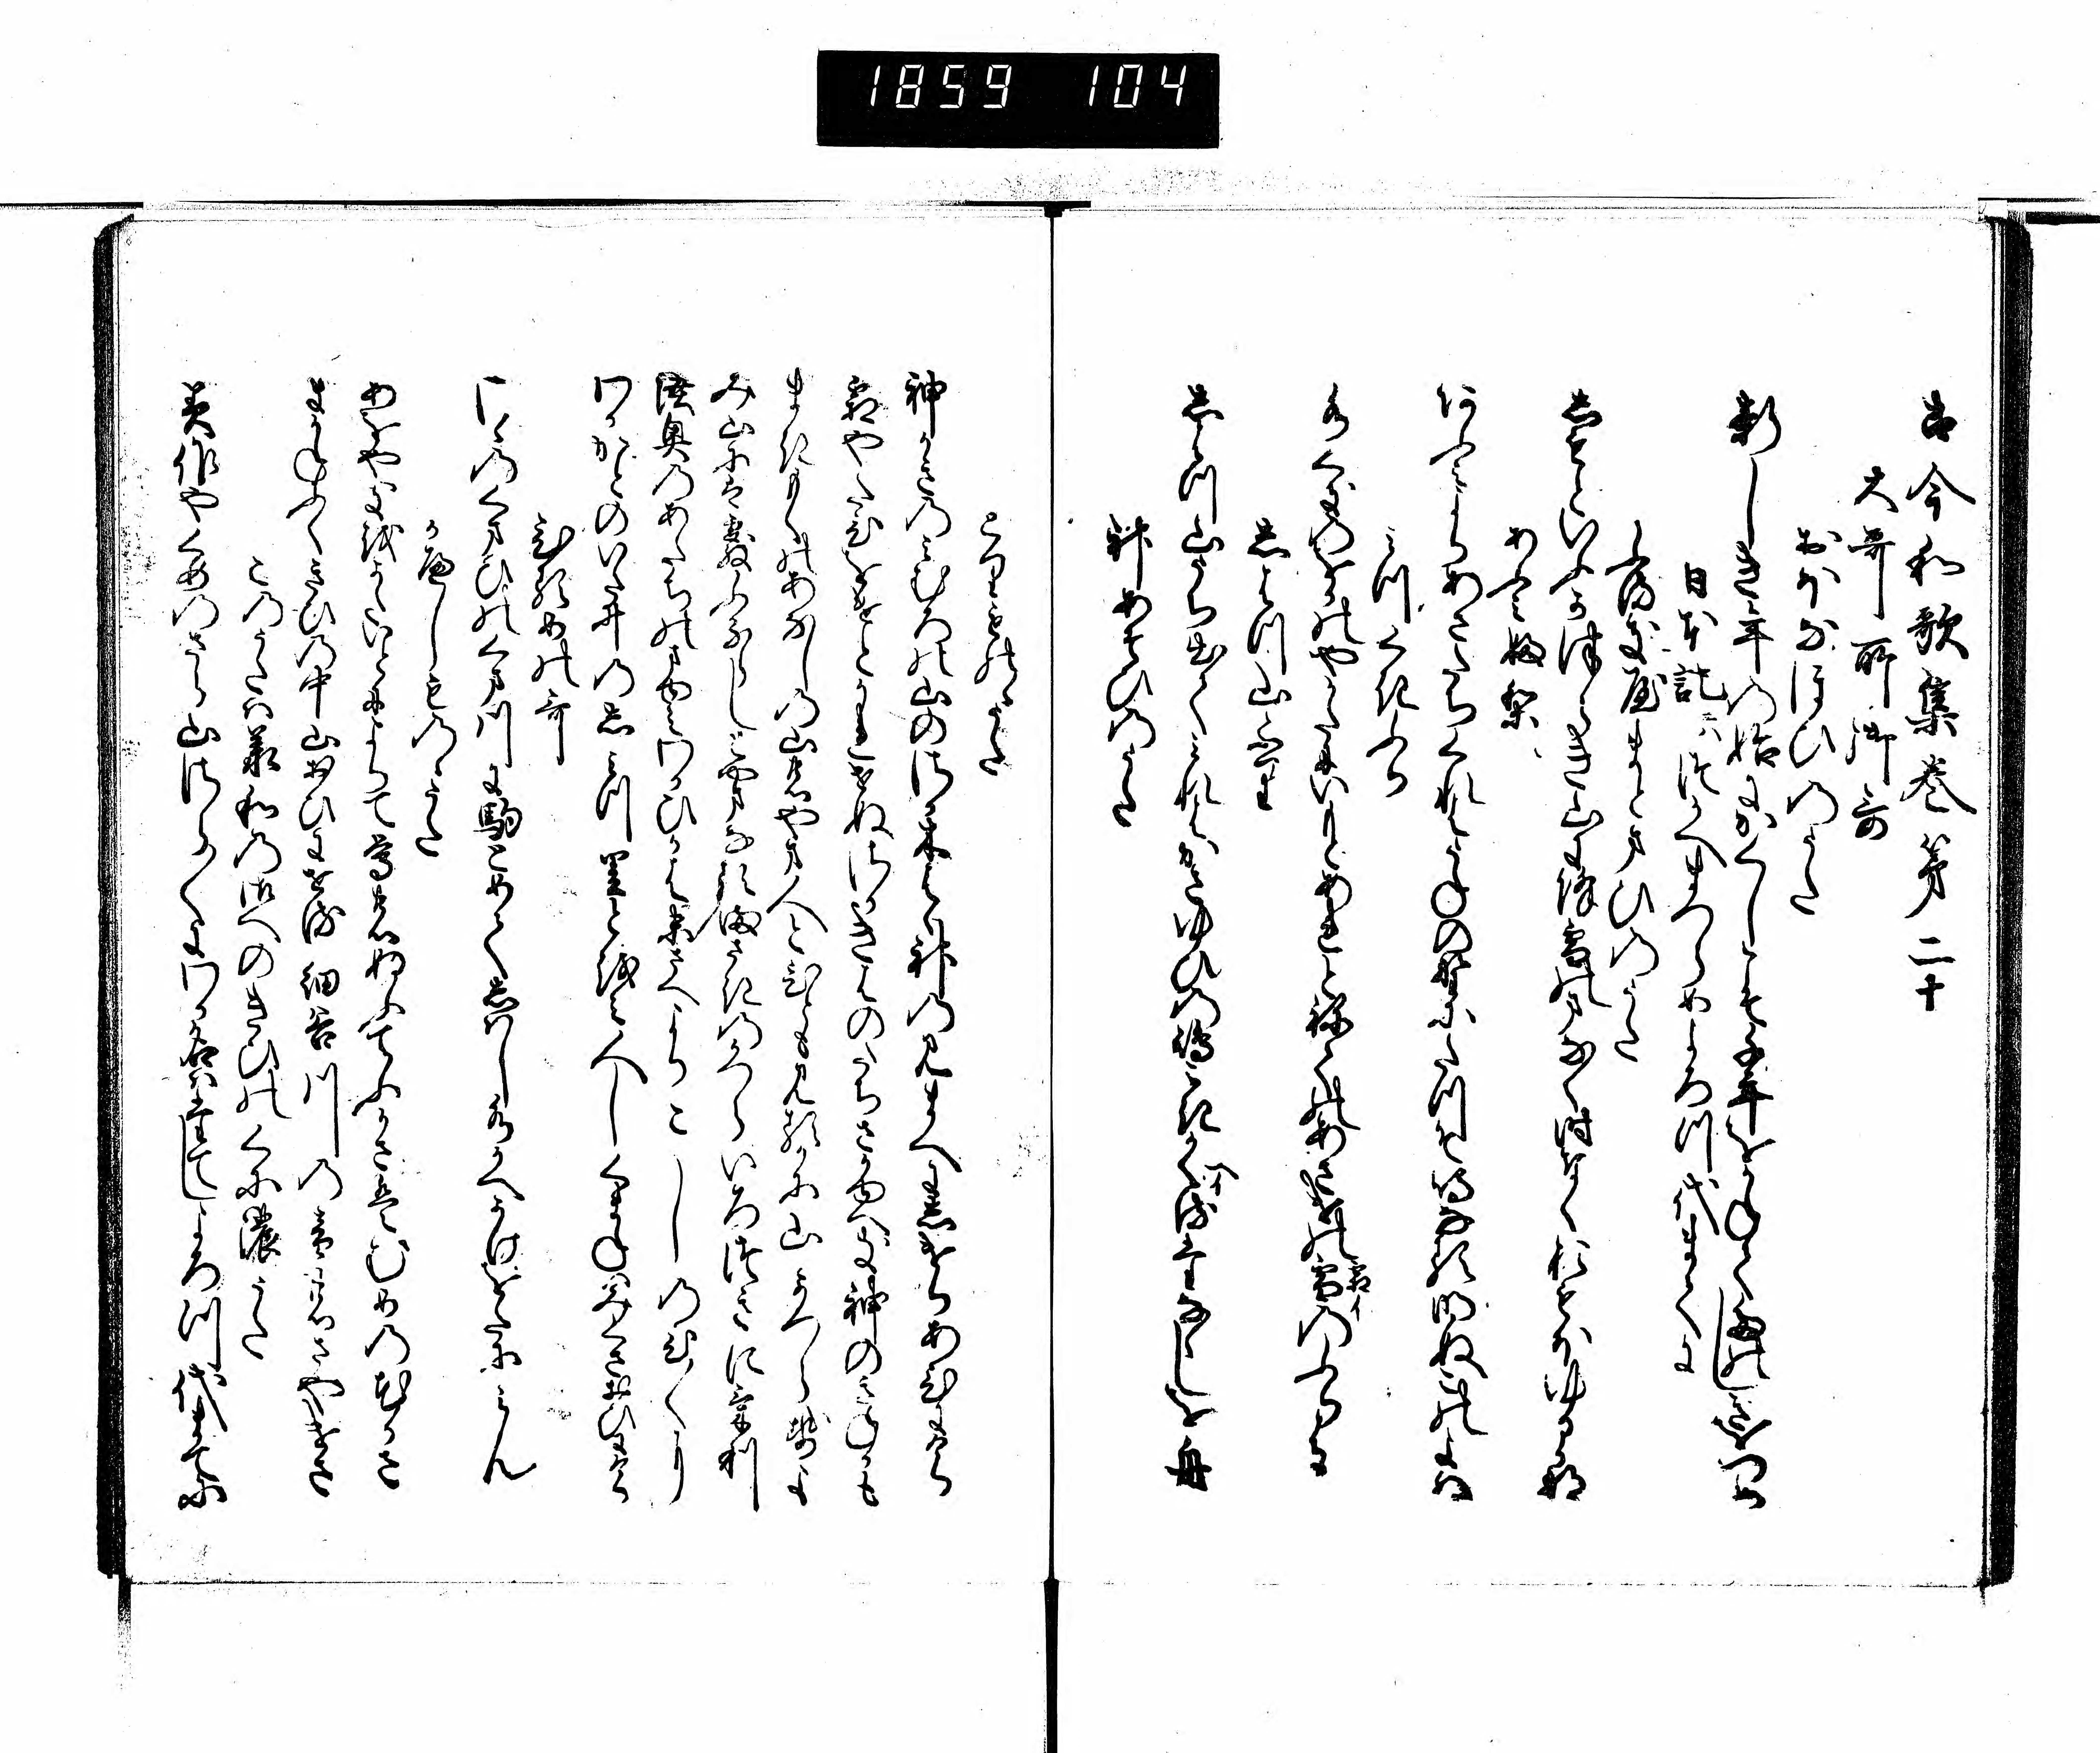 1859 104
古今和歌集巻第二十
大哥所御哥
おほなほひのうた
新しき年の始にかくしこそ千年をかねてたのしきをつめ
日本記には つかへまつらめよろつ代まてに
ふるきやまとまひのうた
しもとゆふかつらき山にふる雪のまなく時なくおもほゆるかな
あふみふり
あふみよりあさたちくれはうねの野にたつそなくなる明ぬこの夜は
みつくきふり
水くきのをかのやかたにいもとあれとねての朝けの霜のふりは
しはつ山ふり
しはつ山うち出てみれはかさゆひの嶋こきかくる たなゝしを舟
神あそひのうた
とりものゝうた
神かきのみむろの山のさかき葉は神の見まへにしけりあひにけり
霜やたひをけとかれせぬさかきはのたちさかゆへき神のきねかも
まきもくのあなしの山の山人と人も見るかに山かつらせよ
み山にはあられふるらしと山なるまさきのかつらいろつきにけり
陸奥のあたちのま弓わかひかはすゑさへよりこしのひ〱に
わかかとのいた井のし水里とをみ人しくまねはみくさおひにけり
ひるめの哥
さゝのくまひのくま川に駒とめてしはし水かへかけをたにみん
かへしものゝうた
あをやきをかたいとによりて鶯のぬふてふかさはむめの花かさ
まかねふくきひの中山おひにせる細谷川の音のさやけさ
このうたは承和の御へのきひのくにのうた
美作やくめのさら山さら〱にわか名はたてしよろつ代まてに